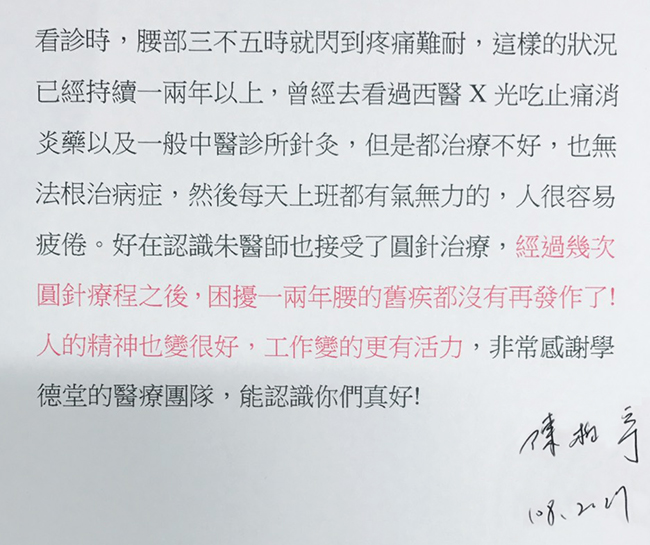 看診時，腰部三不五時就閃到疼痛難耐，這樣的狀況
已經持續一兩年以上，曾經去看過西醫 X 光吃止痛消
炎藥以及一般中醫診所針灸，但是都治療不好，也無
法根治病症，然後每天上班都有氣無力的，人很容易
疲倦。好在認識朱醫師也接受了圓針治療，經過幾次
圓針療程之後，困擾一兩年腰的舊疾都沒有再發作了!
人的精神也變很好，工作變的更有活力，非常感謝學
德堂的醫療團隊，能認識你們真好!
陳
108.2.27